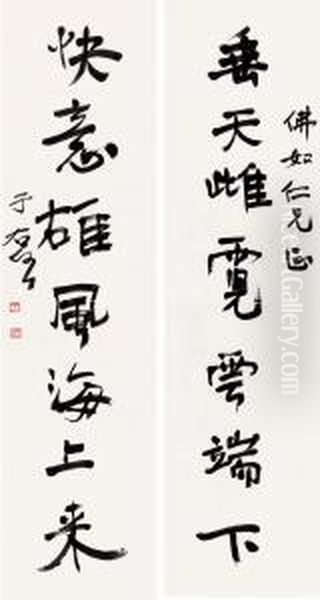 佛如仁兄正
垂天雌霓雲端下
快意雄風海上来
于右任
Gallery.com